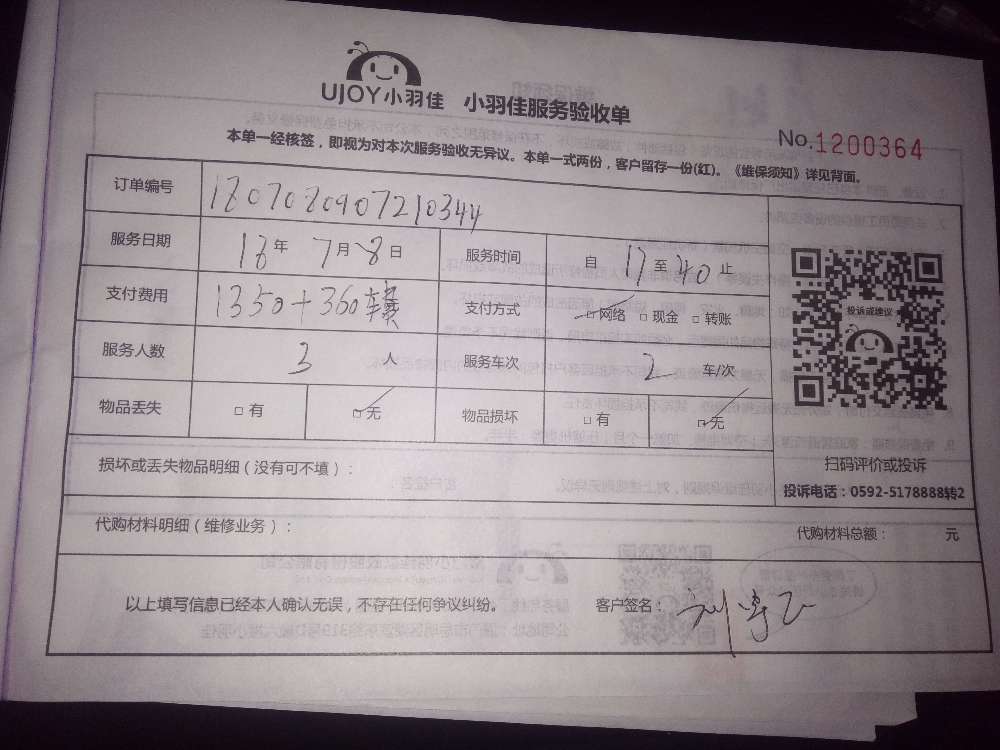 UJOY小羽佳 小羽佳服务验收单
No.1200364
本单一经核签，即视为对本次服务验收无异议。本单一式两份，客户留存一份(红)。《维保须知》详见背面。
订单编号 1807080907210344
服务日期 18年 7月8日 服务时间 自 17 至 40 止
支付费用 1350+360车费 支付方式 □网络 □现金 □转账
投诉或建议
服务人数 3 人 服务车次 2 车/次
物品丢失 □有 □无 物品损坏 □有 □无
扫码评价或投诉
损坏或丢失物品明细（没有可不填）：
投诉电话：0592-5178888转2
代购材料明细（维修业务）： 代购材料总额： 元
以上填写信息已经本人确认无误，不存在任何争议纠纷。 客户签名：刘